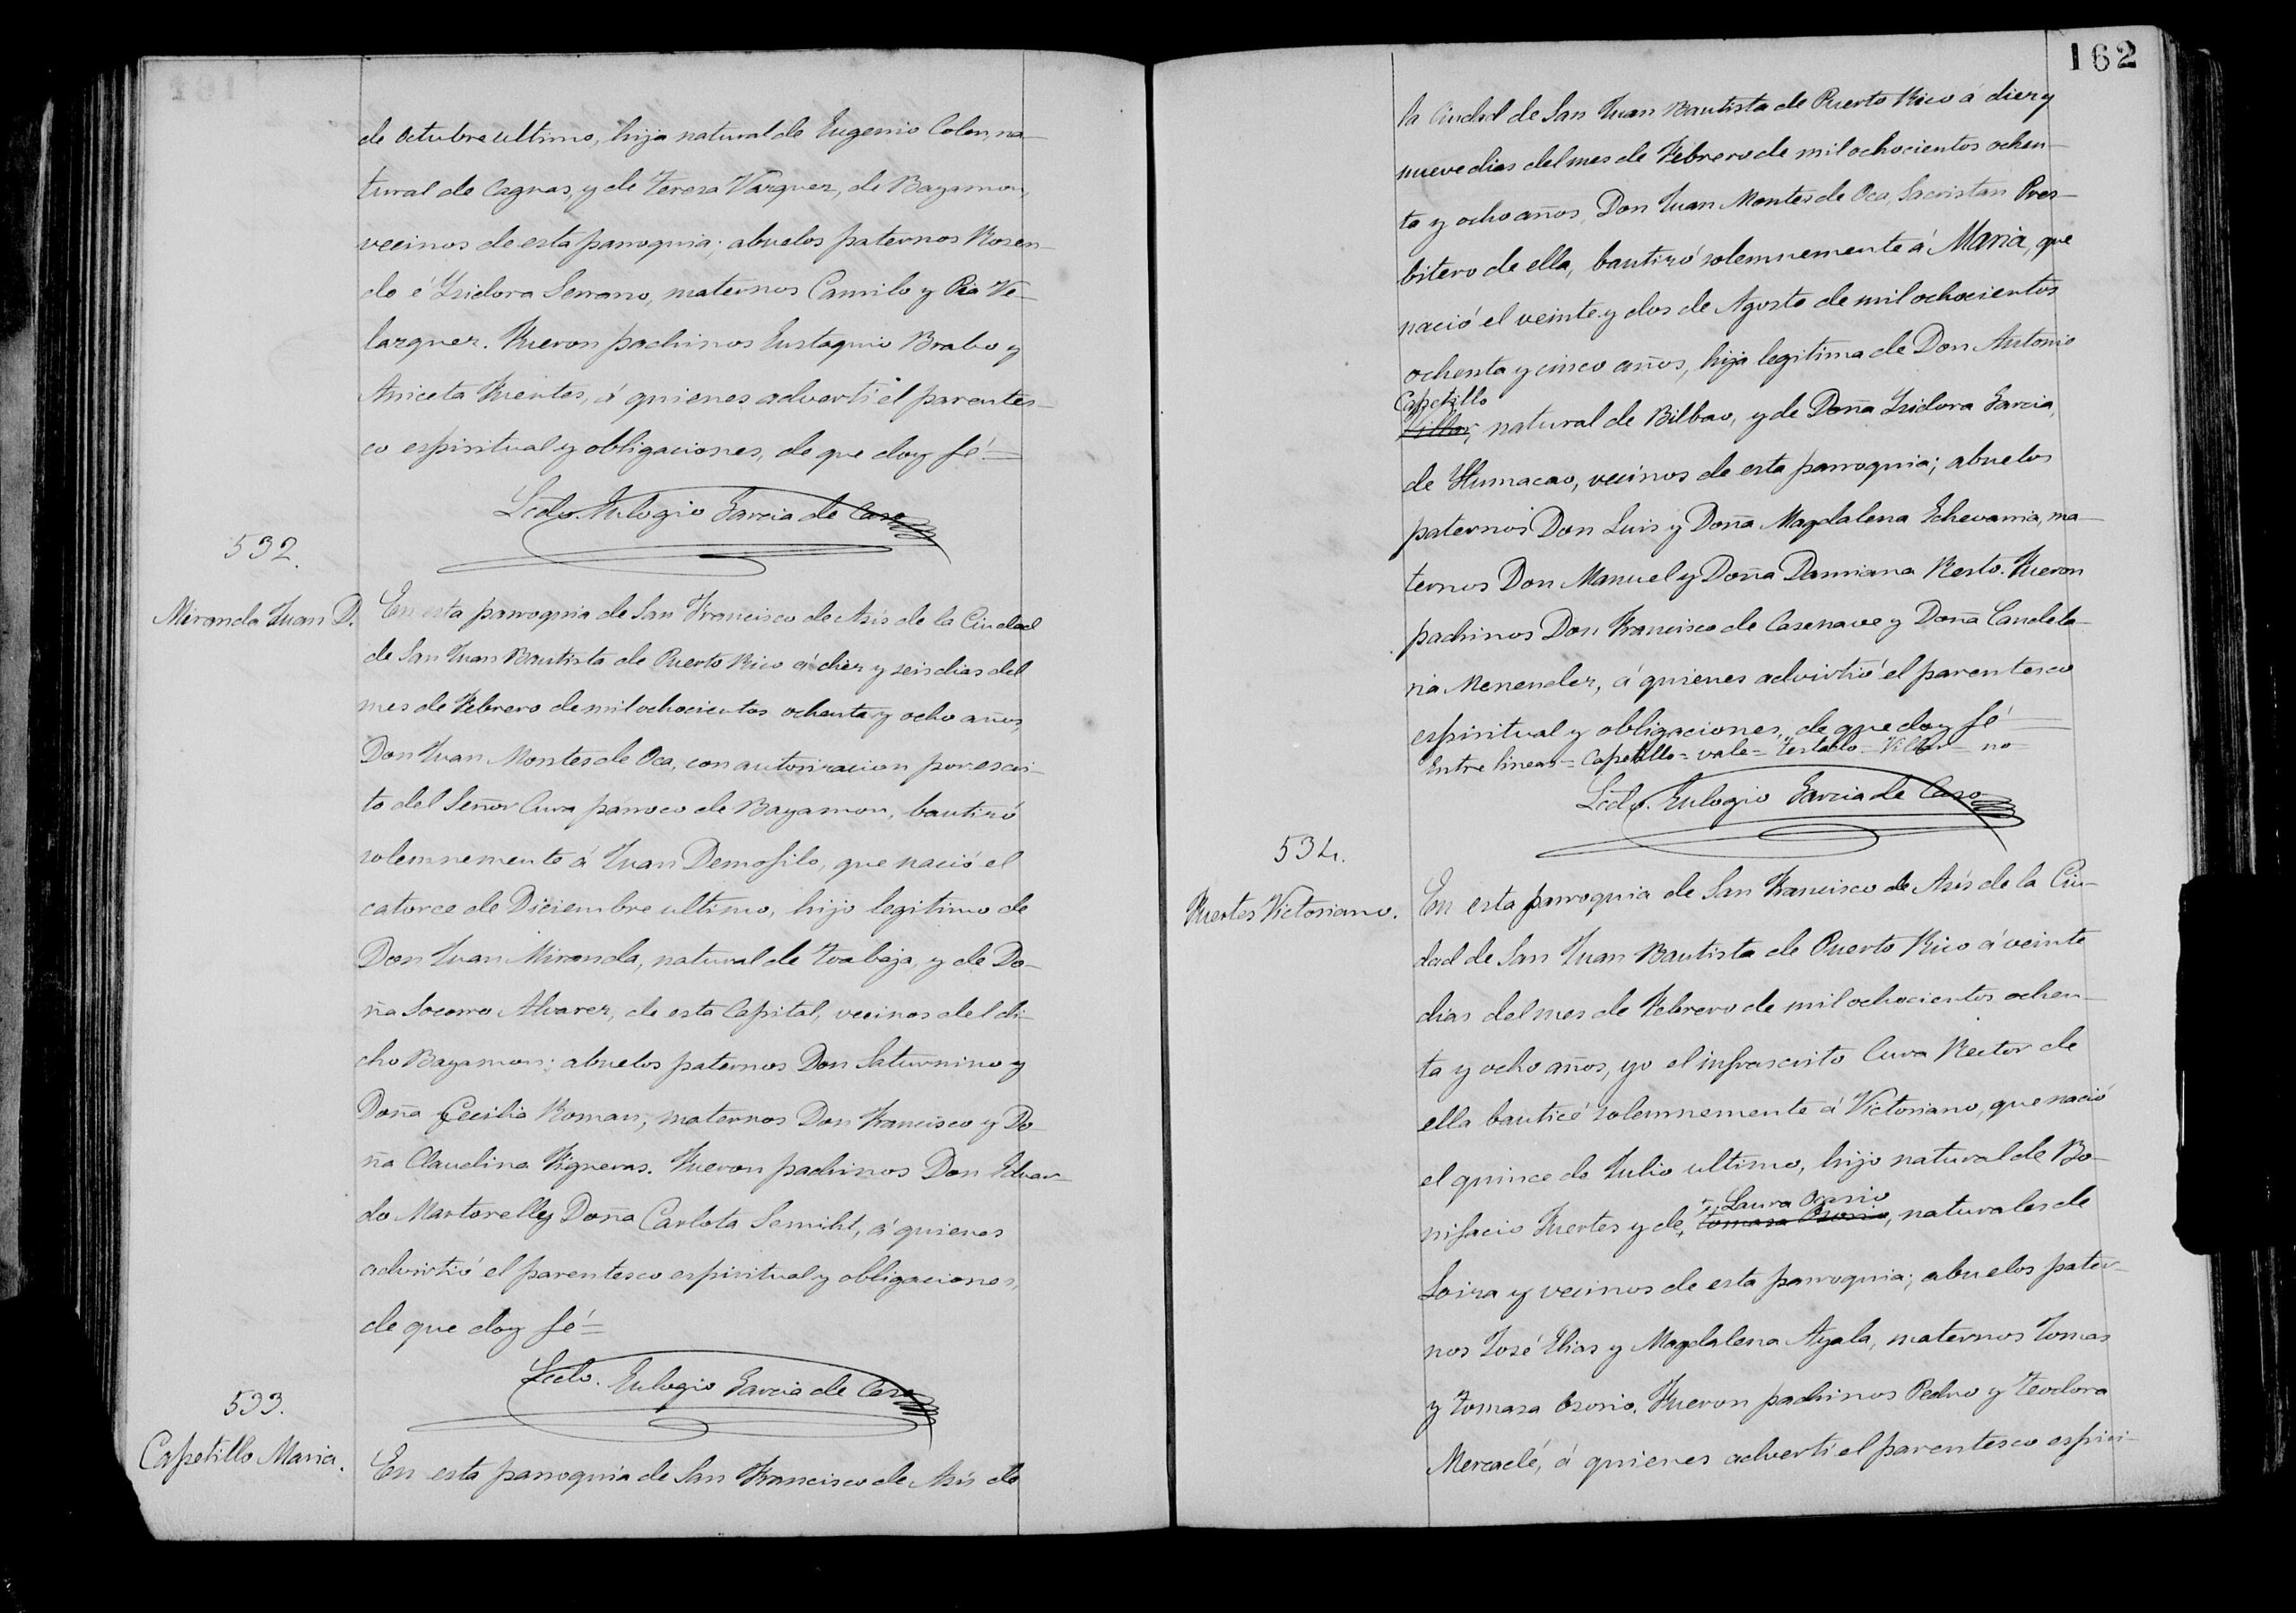 de Octubre ultimo, hija natural de Eugenio Colon, na-
tural de Caguas, y de Teresa Vazquez, de Bayamon,
vecinos de esta parroquia; abuelos paternos Rosen-
do é Ysidora Serrano, maternos Camilo y Pia Ve-
lazquez. Fueron padrinos Eustaquio Brabo y
Aniceta Fuentes, á quienes advertí el parentes-
co espiritual y obligaciones, de que doy fé=
Lcdo. Eulogio Garcia de Caso
532.
Miranda Juan D.
En esta parroquia de San Francisco de Asís de la Ciudad
de San Juan Bautista de Puerto Rico á diez y seis dias del
mes de Febrero de mil ochocientos ochenta y ocho años,
Don Juan Montes de Oca, con autorizacion por escri-
to del Señor Cura párroco de Bayamon, bautizó
solemnemente á Juan Demofilo, que nació el
catorce de Diciembre ultimo, hijo legitimo de
Don Juan Miranda, natural de Toa baja, y de Do-
ña Socorro Alvarez, de esta Capital, vecinos del di-
cho Bayamon; abuelos paternos Don Saturnino y
Doña Cecilia Roman; maternos Don Francisco y Do-
ña Claudina Figueras. Fueron padrinos Don Eduar-
do Martorell y Doña Carlota Semiht, á quienes
advirtió el parentesco espiritual y obligaciones,
de que doy fé=
Lcdo. Eulogio Garcia de Caso
533.
Capetillo Maria.
En esta parroquia de San Francisco de Asís de
162
la Ciudad de San Juan Bautista de Puerto Rico á diez y
nueve dias del mes de Febrero de mil ochocientos ochen-
ta y ocho años, Don Juan Montes de Oca, Sacristan Pres-
bitero de ella, bautizó solemnemente á Maria, que
nació el veinte y dos de Agosto de mil ochocientos
ochenta y cinco años, hija legitima de Don Antonio
Capetillo
Villar, natural de Bilbao, y de Doña Ysidora Garcia,
de Humacao, vecinos de esta parroquia; abuelos
paternos Don Luis y Doña Magdalena Echevarria, ma-
ternos Don Manuel y Doña Damiana Resto. Fueron
padrinos Don Francisco de Casenave y Doña Candela-
ria Menendez, á quienes advirtió el parentesco
espiritual y obligaciones, de que doy fé
Entre lineas = Capetillo = vale = Testado = Villar = no =
Lcdo. Eulogio Garcia de Caso
534.
Fuertes Victoriano.
En esta parroquia de San Francisco de Asís de la Ciu-
dad de San Juan Bautista de Puerto Rico á veinte
dias del mes de Febrero de mil ochocientos ochen-
ta y ocho años, yo el infrascrito Cura Rector de
ella bauticé solemnemente á Victoriano, que nació
el quince de Julio ultimo, hijo natural de Bo-
Laura Osorio
nifacio Fuertes y de, Tomasa Osorio, naturales de
Loiza y vecinos de esta parroquia; abuelos pater-
nos José Elias y Magdalena Ayala, maternos Tomas
y Tomasa Osorio. Fueron padrinos Pedro y Teodora
Mercadé, á quienes advertí el parentesco espiri-